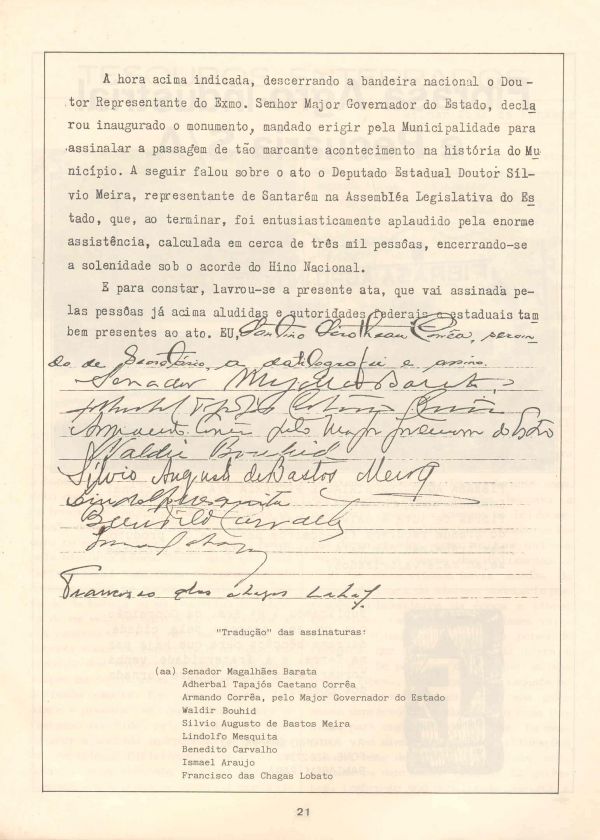 A hora acima indicada, descerrando a bandeira nacional o Dou-
tor Representante do Exmo. Senhor Major Governador do Estado, decla
rou inaugurado o monumento, mandado erigir pela Municipalidade para
assinalar a passagem de tão marcante acontecimento na história do Mu
nicípio. A seguir falou sobre o ato o Deputado Estadual Doutor Síl-
vio Meira, representante de Santarém na Assembléa Legislativa do Es
tado, que, ao terminar, foi entusiasticamente aplaudido pela enorme
assistência, calculada em cerca de três mil pessôas, encerrando-se
a solenidade sob o acorde do Hino Nacional.
E para constar, lavrou-se a presente ata, que vai assinada pe-
las pessôas já acima aludidas e autoridades federais e estaduais tam
bem presentes ao ato. EU, Corrêa, servin
do de Secretário, a datilografei e assino.
Senador Barata
Armando Corrêa pelo Major Governador do Estado
Waldir Bouhid
Sílvio Augusto de Bastos Meira
Lindolfo Mesquita
Benedito Carvalho
Francisco das Chagas Lobato
"Tradução" das assinaturas:
(aa) Senador Magalhães Barata
Adherbal Tapajós Caetano Corrêa
Armando Corrêa, pelo Major Governador do Estado
Waldir Bouhid
Silvio Augusto de Bastos Meira
Lindolfo Mesquita
Benedito Carvalho
Ismael Araujo
Francisco das Chagas Lobato
21